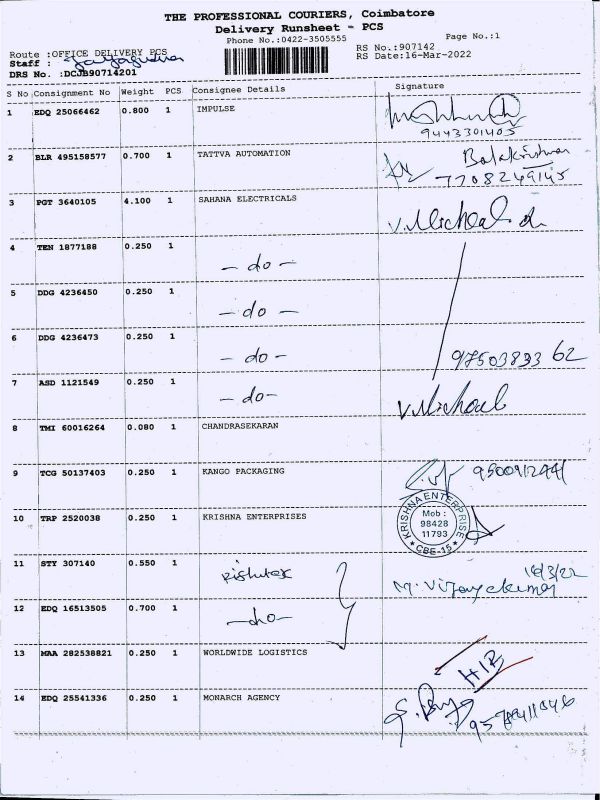 THE PROFESSIONAL COURIERS, Coimbatore
Delivery Runsheet - PCS
Phone No.:0422-3505555
Page No.:1
Route :OFFICE DELIVERY PCS
RS No.:907142
Staff :
RS Date:16-Mar-2022
DRS No. :DCJB90714201
S No Consignment No Weight PCS Consignee Details Signature
1 EDQ 25066462 0.800 1 IMPULSE
9443301405
2 BLR 495158577 0.700 1 TATTVA AUTOMATION Balakrishnan
7708249145
3 PGT 3640105 4.100 1 SAHANA ELECTRICALS V.Micheal
4 TEN 1877188 0.250 1 - do -
5 DDG 4236450 0.250 1 - do -
6 DDG 4236473 0.250 1 - do - 9750383362
7 ASD 1121549 0.250 1 - do - V.Micheal
8 TMI 60016264 0.080 1 CHANDRASEKARAN
9 TCG 50137403 0.250 1 KANGO PACKAGING
10 TRP 2520038 0.250 1 KRISHNA ENTERPRISES
KRISHNA ENTERPRISE
Mob :
98428
11793
* CBE-15 *
11 STY 307140 0.550 1 16/3/22
M. Vijayakumar
12 EDQ 16513505 0.700 1 - do -
13 MAA 282538821 0.250 1 WORLDWIDE LOGISTICS
14 EDQ 25541336 0.250 1 MONARCH AGENCY